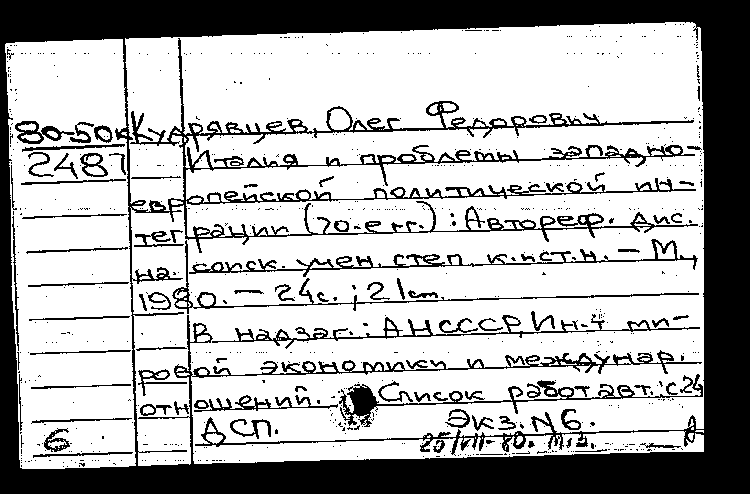 80-50к Кудрявцев, Олег Федорович
2487 Италия и проблемы западно-
европейской политической ин-
теграции (70-е гг.) : Автореф. дис.
на. соиск. учен. степ. к.ист.н. – М.,
1980. – 24с. ; 21см.
В надзаг.: АН СССР, Ин-т ми-
ровой экономики и междунар.
отношений. Список работ авт.: с 24
ДСП. Экз. N6.
6 25/VII-80.